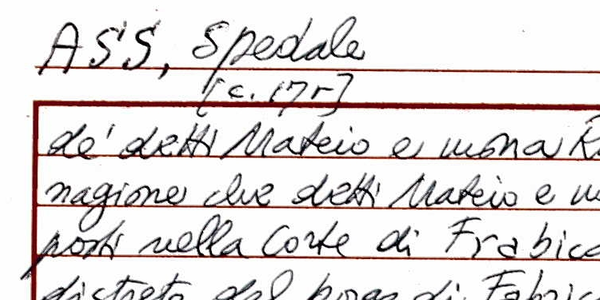 ASS, Spedale
[c. 17r]
de' detti Mateio e mona
nagione che detti Mateio e
posti nella Corte di Frabica
distreto del borgo di Fabric